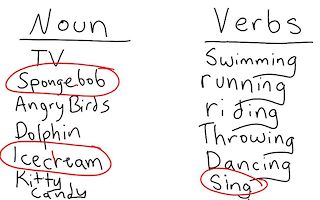 Noun
TV
Spongebob
Angry Birds
Dolphin
Icecream
Kitty
Candy
Verbs
Swimming
running
riding
Throwing
Dancing
Sing